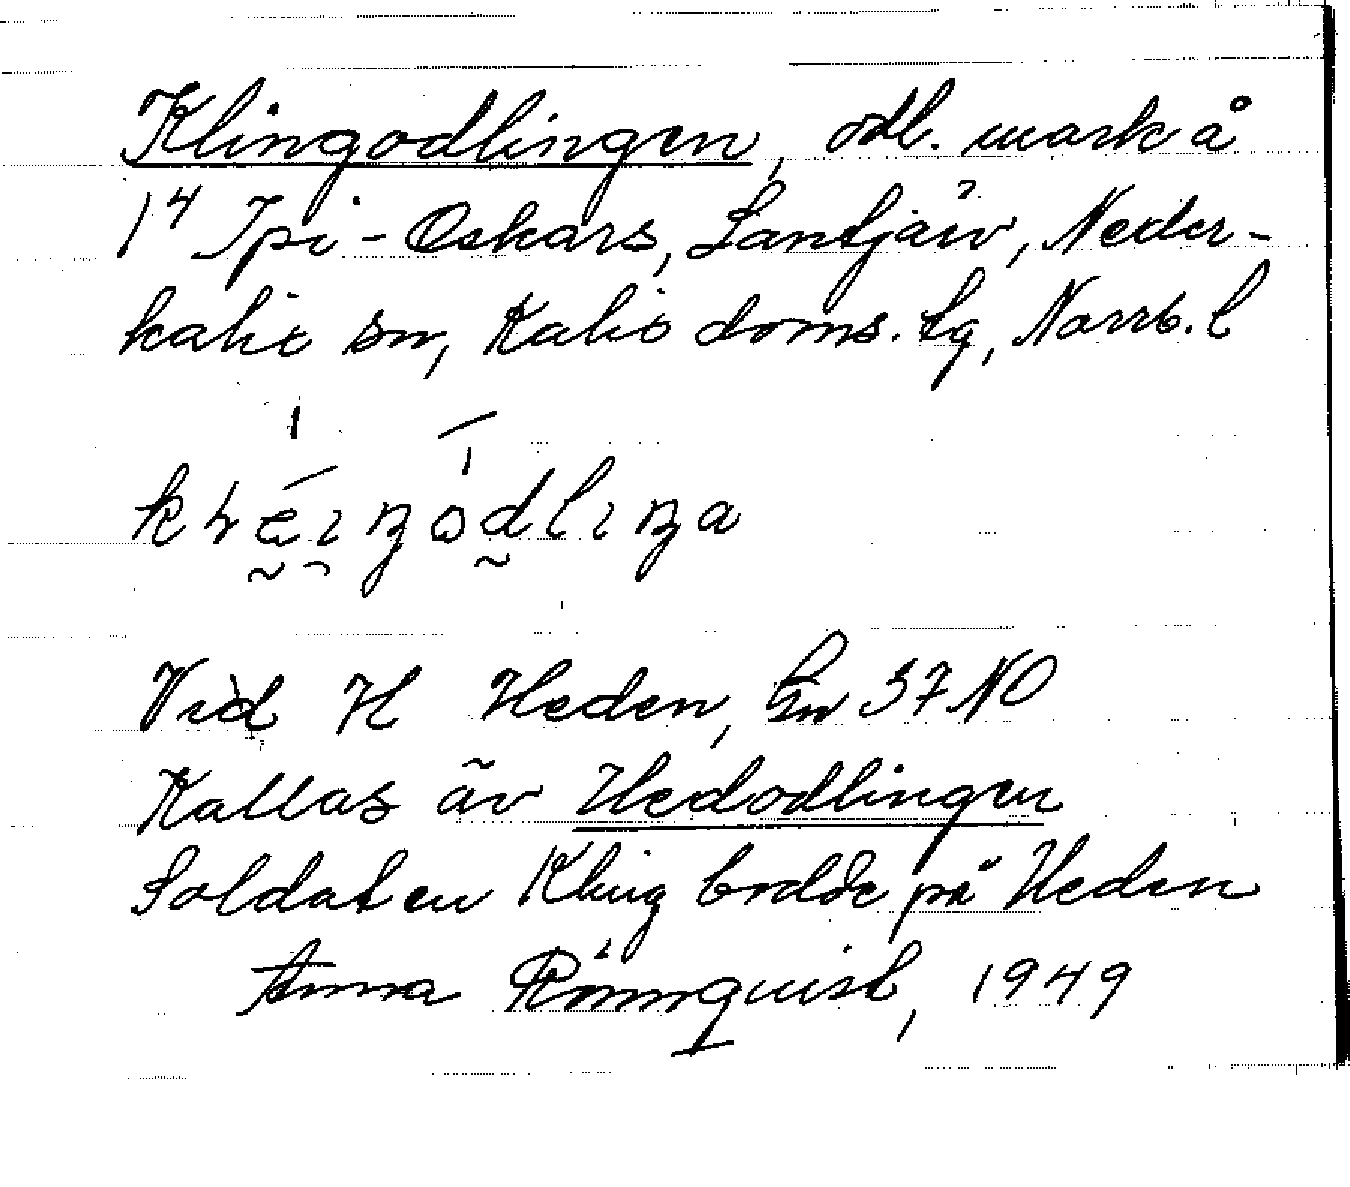 Klingodlingen, odl. mark å
1⁴ Ipi-Oskars, Santjärv, Neder-
kalix sn, Kalix doms. tg, Norrb. l
Vid H Heden, Gn 37 NO
Kallas äv Hedodlingen
Soldaten Kling bodde på Heden
Anna Rönnquist, 1949